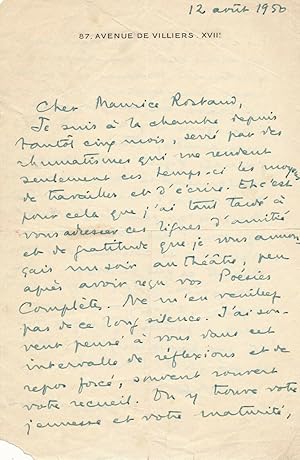 12 août 1950
87. AVENUE DE VILLIERS. XVIIE
Cher Maurice Rostand,
Je suis à la chambre depuis
tantôt cinq mois, serré par des
rhumatismes qui me rendent
seulement ces temps-ci les moyens
de travailler et d'écrire. Et c'est
pour cela que j'ai tant tardé à
vous adresser ces lignes d'amitié
et de gratitude que je vous annon-
çais un soir au théâtre, peu
après avoir reçu vos Poésies
Complètes. Ne m'en veuillez
pas de ce long silence. J'ai sou-
vent pensé à vous dans cet
intervalle de réflexions et de
repos forcé, souvent rouvert
votre recueil. On y trouve votre
jeunesse et votre maturité,